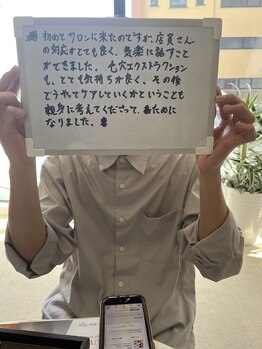 初めてサロンに来たのですが、店員さん
の対応がとても良く、気楽に話すこと
ができました。毛穴エクストラクション
も、とても気持ちが良く、その後
どうやってケアしていくかということも
親身に考えてくださって、為ために
なりました。